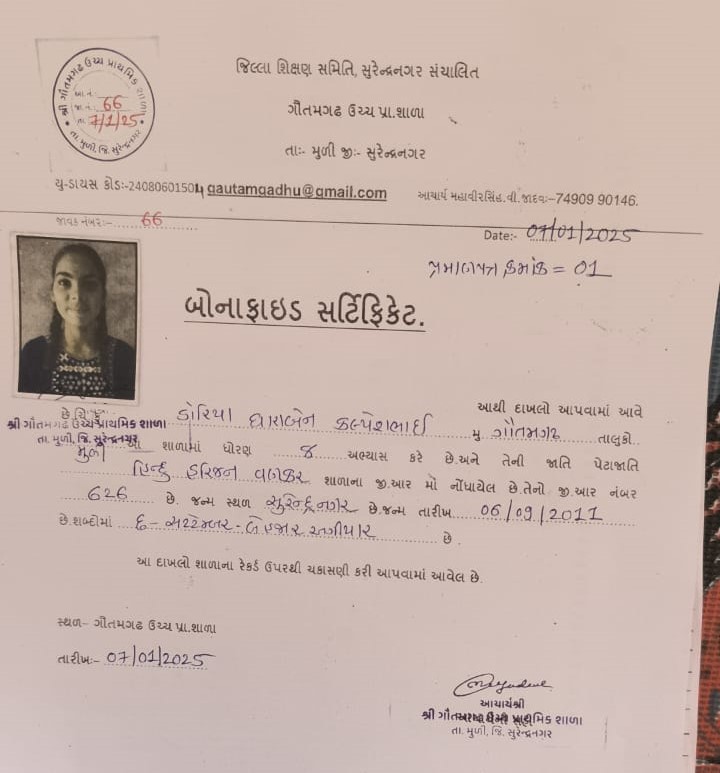 શ્રી ગૌતમગઢ ઉચ્ચ પ્રાથમિક શાળા
આ.નં.
જા.નં. 66
તા. 7/1/25
તા. મુળી, જિ. સુરેન્દ્રનગર
જિલ્લા શિક્ષણ સમિતિ, સુરેન્દ્રનગર સંચાલિત
ગૌતમગઢ ઉચ્ચ પ્રા.શાળા
તાઃ- મુળી જીઃ- સુરેન્દ્રનગર
યુ-ડાયસ કોડઃ-24080601504 gautamgadhu@gmail.com આચાર્ય મહાવીરસિંહ.વી.જાદવઃ-74909 90146.
જાવક નંબરઃ- 66
Date:- 07/01/2025
પ્રમાણપત્ર ક્રમાંક = 01
બોનાફાઇડ સર્ટિફિકેટ.
આથી દાખલો આપવામાં આવે
છે કે ડોરિયા ધારાબેન કલ્પેશભાઈ મુ ગૌતમગઢ તાલુકો
શ્રી ગૌતમગઢ ઉચ્ચ પ્રાથમિક શાળા
તા. મુળી, જિ. સુરેન્દ્રનગર
મુળી આ શાળામાં ધોરણ ૪ અભ્યાસ કરે છે.અને તેની જાતિ પેટાજાતિ
હિન્દુ હરિજન વણકર શાળાના જી.આર માં નોંધાયેલ છે.તેનો જી.આર નંબર
626 છે. જન્મ સ્થળ સુરેન્દ્રનગર છે.જન્મ તારીખ 06/09/2011
છે.શબ્દોમાં ૬- સપ્ટેમ્બર- બેહજાર અગીયાર છે.
આ દાખલો શાળાના રેકર્ડ ઉપરથી ચકાસણી કરી આપવામાં આવેલ છે.
સ્થળ- ગૌતમગઢ ઉચ્ચ પ્રા.શાળા
તારીખઃ- 07/01/2025
આચાર્યશ્રી
શ્રી ગૌતમગઢ ઉચ્ચ પ્રાથમિક શાળા
તા. મુળી, જિ. સુરેન્દ્રનગર